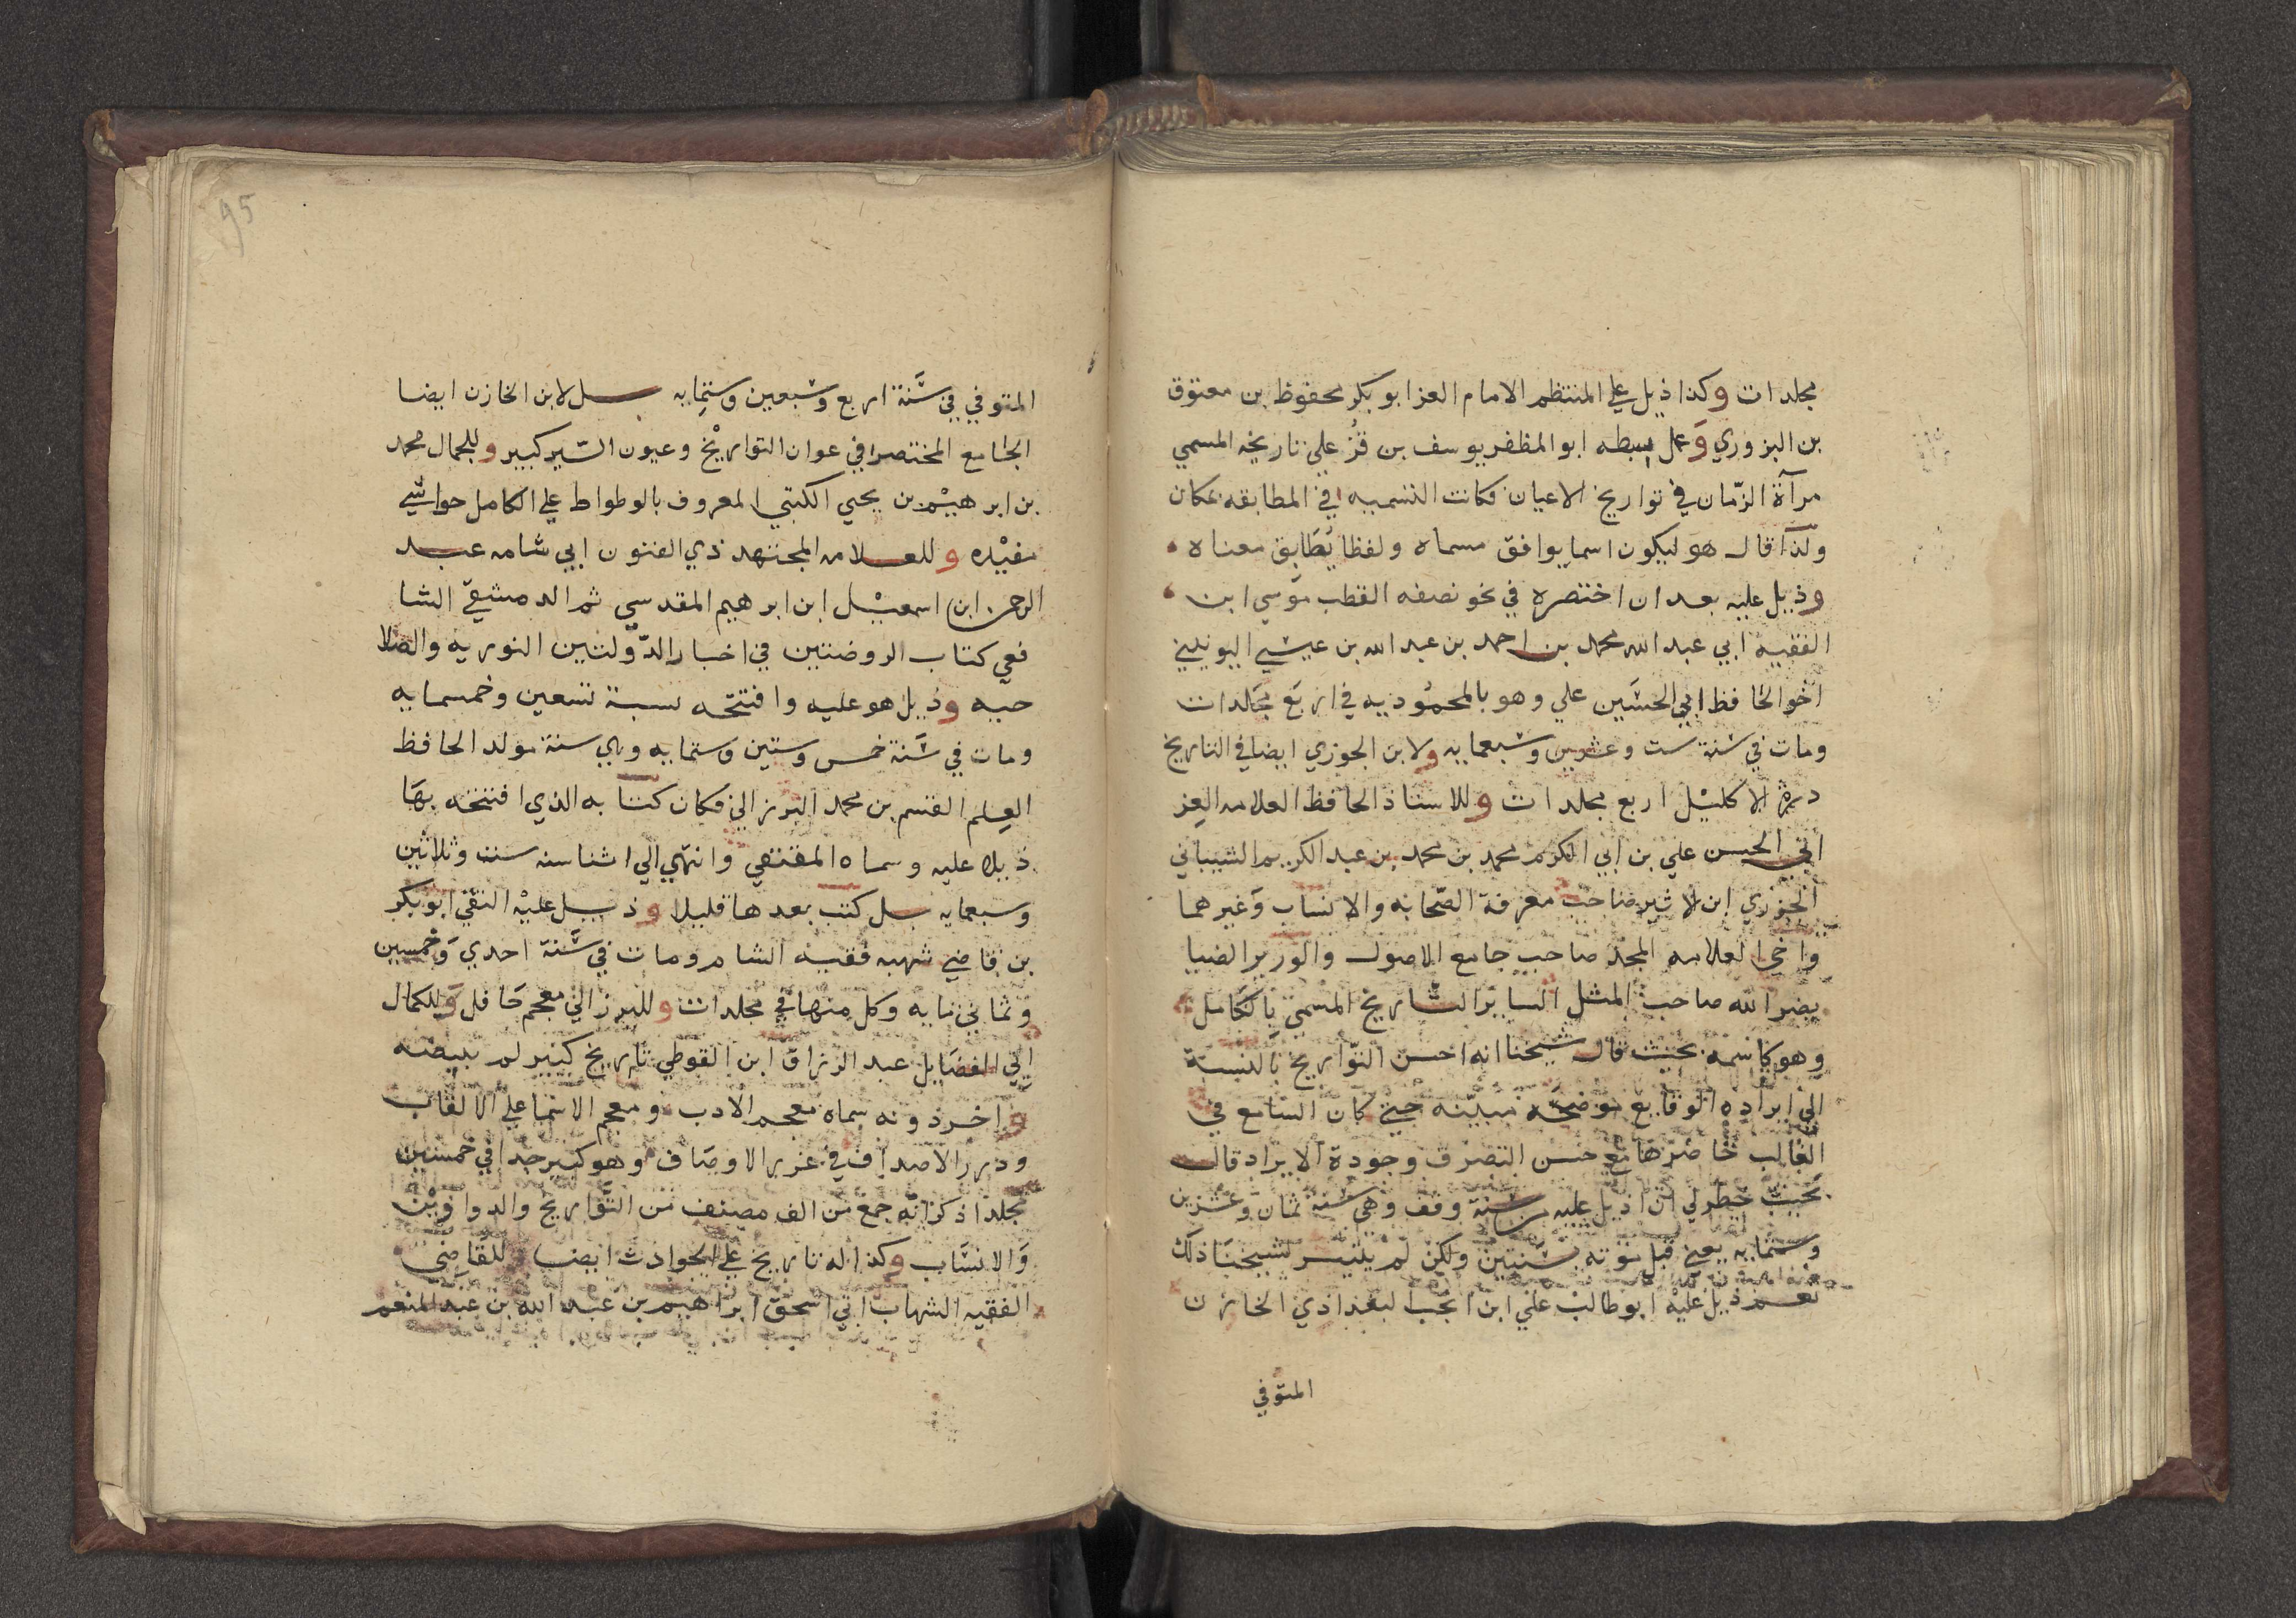 مجلدات وكذا ذيل علي المنتظم الامام العز ابو بكر محفوظ بن معتوق
بن البزوري وَعمل سبطه ابو المظفر يوسف بن قزُ علي تاريخه المسمي
مرآة الزّمان في تواريخ الاعيان فكانت التسميه في المطابقه بمكان
ولذا قال هو ليكون اسما يوافق مسماه ولفظا يُطَابق معناه
وذيل عليه بعد ان اختصره في نحو نصفه القطب موسي ابن
الفقيه ابي عبد الله محمد بن احمد بن عبد الله بن عيسي اليونيني
اخو الحافظ ابي الحسَين علي وهو بالمحموُديه في اربَع مجَلدات
ومات في سنة ست وعشرين وسبعمايه ولابن الجوزي ايضا في التاريخ
درة الاكليْل اربع مجلدات وللاستاذ الحافظ العلامه العِز
ابي الحسن علي بن ابي الكرم محمد بن محمد بن عبد الكريم الشيباني
الجزري ابن الاثير صاحب معرفة الصّحابه والانساب وَغيرهما
واخي العلامه المجد صاحب جامع الاصول والوزير الضيا
نصر الله صاحب المثل الساير التاريخ المسمي بالكَامل
وهو كاسمه بحيث قال شيخنا انه احسن التواريخ بالنسبة
الي ايراده الوقايع موضحَة مبيّنه حتي كان السامع في
الغالب حاضرها مع حسن التصرف وجودة الايراد قال
بحَيث خطر لي ان اذيل عليه من سنة وقف وهي سنة ثمان وعشرين
وستمايه يعني قبل موته بسَنتين ولكن لم يتيسر لشيخنَا ذلك
نعم ذيل عليه ابو طالب علي ابن انجب البغدادي الخازن
المتوفي
95
المتوفي في سَنة اربع وسَبعين وستمِايه بل لابن الخازن ايضا
الجامع المختصر في عوان التواريْخ وعيون السّير كبير وللجمال محمد
بن ابرهيْم بن يحيي الكتبي المعروف بالوطواط علي الكامل حواشي
مفيْده وللعلامه المجتهد ذي الفنون ابي شامه عبد
الرحمن ابن اسمعيْل ابن ابرهيم المقدسي ثم الدمشقي الشا
فعي كتاب الروضتين في اخبار الدّولتين النوريه والصلا
حيه وذيل هو عليه وافتتحه بسنة تسعين وخمسمايه
ومات في سَنة خمس وستين وستمايه وهي سنة مولد الحافظ
العِلم القسم بن محمد البرزالي فكان كتابه الذي افتتحه بهَا
ذيلا عليه وسماه المقتفي وانتهي الي اثنا سنه ستت وثلاثين
وسبعمايه بل كتب بعدها قليلا وذيل عليْه التقي ابو بكر
بن قاضي شهبه فقيه الشام ومات في سَنة احدي وَخمسين
وثماني مايه وكل منهما في مجلدات وللبرزالي معجم حَافل وَللكمال
ابي الفضايل عبد الرزاق ابن الفوطي تاريخ كبير لم يبيضه
واخر دونه سماه معجم الادب ومعجم الاسما علي الالقاب
ودرر الاصداف في غرر الاوصَاف وهو كبير جدا في خمسين
مجلدا ذكر انه جمع من الف مصنف من التّوَاريخ والدواوين
وَالانسَاب وكذا له تاريخ علي الحوادث ايضا وللقَاضي
الفقيه الشهاب ابي اسحق ابراهيم بن عبد الله بن عبد المنعم